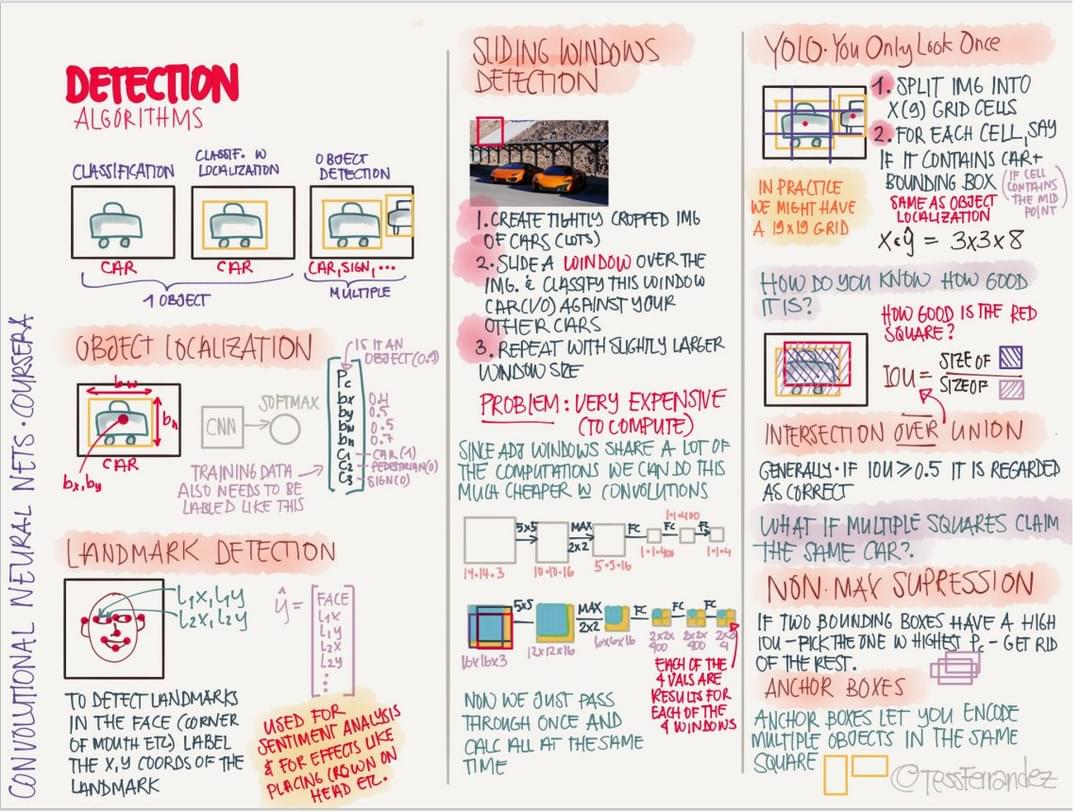 CONVOLUTIONAL NEURAL NETS · COURSERA
DETECTION
ALGORITHMS
CLASSIFICATION
CLASSIF. W
LOCALIZATION
OBJECT
DETECTION
CAR
CAR
CAR, SIGN, ...
1 OBJECT
MULTIPLE
OBJECT LOCALIZATION
bw
bh
CAR
bx,by
CNN
SOFTMAX
IS IT AN
OBJECT (0.9)
Pc
bx 0.4
by 0.5
bw 0.5
bh 0.7
C1 - CAR (1)
C2 - PEDESTRIAN(0)
C3 - SIGN(0)
TRAINING DATA
ALSO NEEDS TO BE
LABLED LIKE THIS
LANDMARK DETECTION
L1X, L1Y
L2X, L2Y
ŷ =
FACE
L1X
L1Y
L2X
L2Y
TO DETECT LANDMARKS
IN THE FACE (CORNER
OF MOUTH ETC) LABEL
THE X,Y COORDS OF THE
LANDMARK
USED FOR
SENTIMENT ANALYSIS
& FOR EFFECTS LIKE
PLACING CROWN ON
HEAD ETC.
SLIDING WINDOWS
DETECTION
1. CREATE TIGHTLY CROPPED IMG
OF CARS (LOTS)
2. SLIDE A WINDOW OVER THE
IMG. & CLASSIFY THIS WINDOW
CAR(1/0) AGAINST YOUR
OTHER CARS
3. REPEAT WITH SLIGHTLY LARGER
WINDOW SIZE
PROBLEM: VERY EXPENSIVE
(TO COMPUTE)
SINCE ADJ WINDOWS SHARE A LOT OF
THE COMPUTATIONS WE CAN DO THIS
MUCH CHEAPER W CONVOLUTIONS
5x5
MAX
2x2
FC
FC
14·14·3
10·10·16
5·5·16
1·1·400
1·1·400
1·1·4
5x5
MAX
2x2
FC
FC
FC
16x16x3
12x12x16
6x6x16
2x2x
400
2x2x
400
2x2x
4
EACH OF THE
4 VALS ARE
RESULTS FOR
EACH OF THE
4 WINDOWS
NOW WE JUST PASS
THROUGH ONCE AND
CALC ALL AT THE SAME
TIME
YOLO · You Only Look Once
1. SPLIT IMG INTO
X(9) GRID CELLS
2. FOR EACH CELL, SAY
IF IT CONTAINS CAR +
BOUNDING BOX
(IF CELL
CONTAINS
THE MID
POINT)
SAME AS OBJECT
LOCALIZATION
IN PRACTICE
WE MIGHT HAVE
A 19x19 GRID
X<ŷ = 3x3x8
HOW DO YOU KNOW HOW GOOD
IT IS?
HOW GOOD IS THE RED
SQUARE?
IOU =
SIZE OF
SIZE OF
INTERSECTION OVER UNION
GENERALLY · IF IOU ≥ 0.5 IT IS REGARDED
AS CORRECT
WHAT IF MULTIPLE SQUARES CLAIM
THE SAME CAR?
NON·MAX SUPRESSION
IF TWO BOUNDING BOXES HAVE A HIGH
IOU - PICK THE ONE W HIGHEST Pc - GET RID
OF THE REST.
ANCHOR BOXES
ANCHOR BOXES LET YOU ENCODE
MULTIPLE OBJECTS IN THE SAME
SQUARE
©TessFerrandez